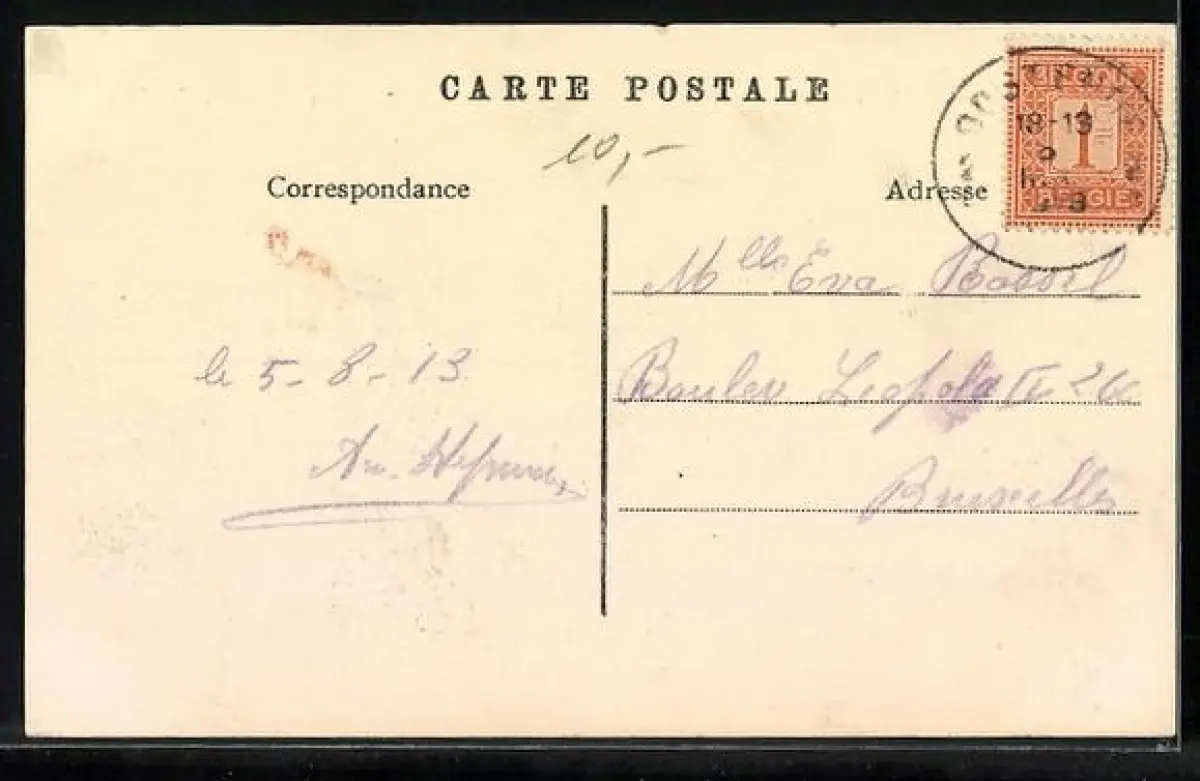 CARTE POSTALE
10,-
Correspondance
Adresse
1
BELGIE
18-19
Mlle Eva
Boulev Leopold II 26
Bruxelles
le 5-8-13